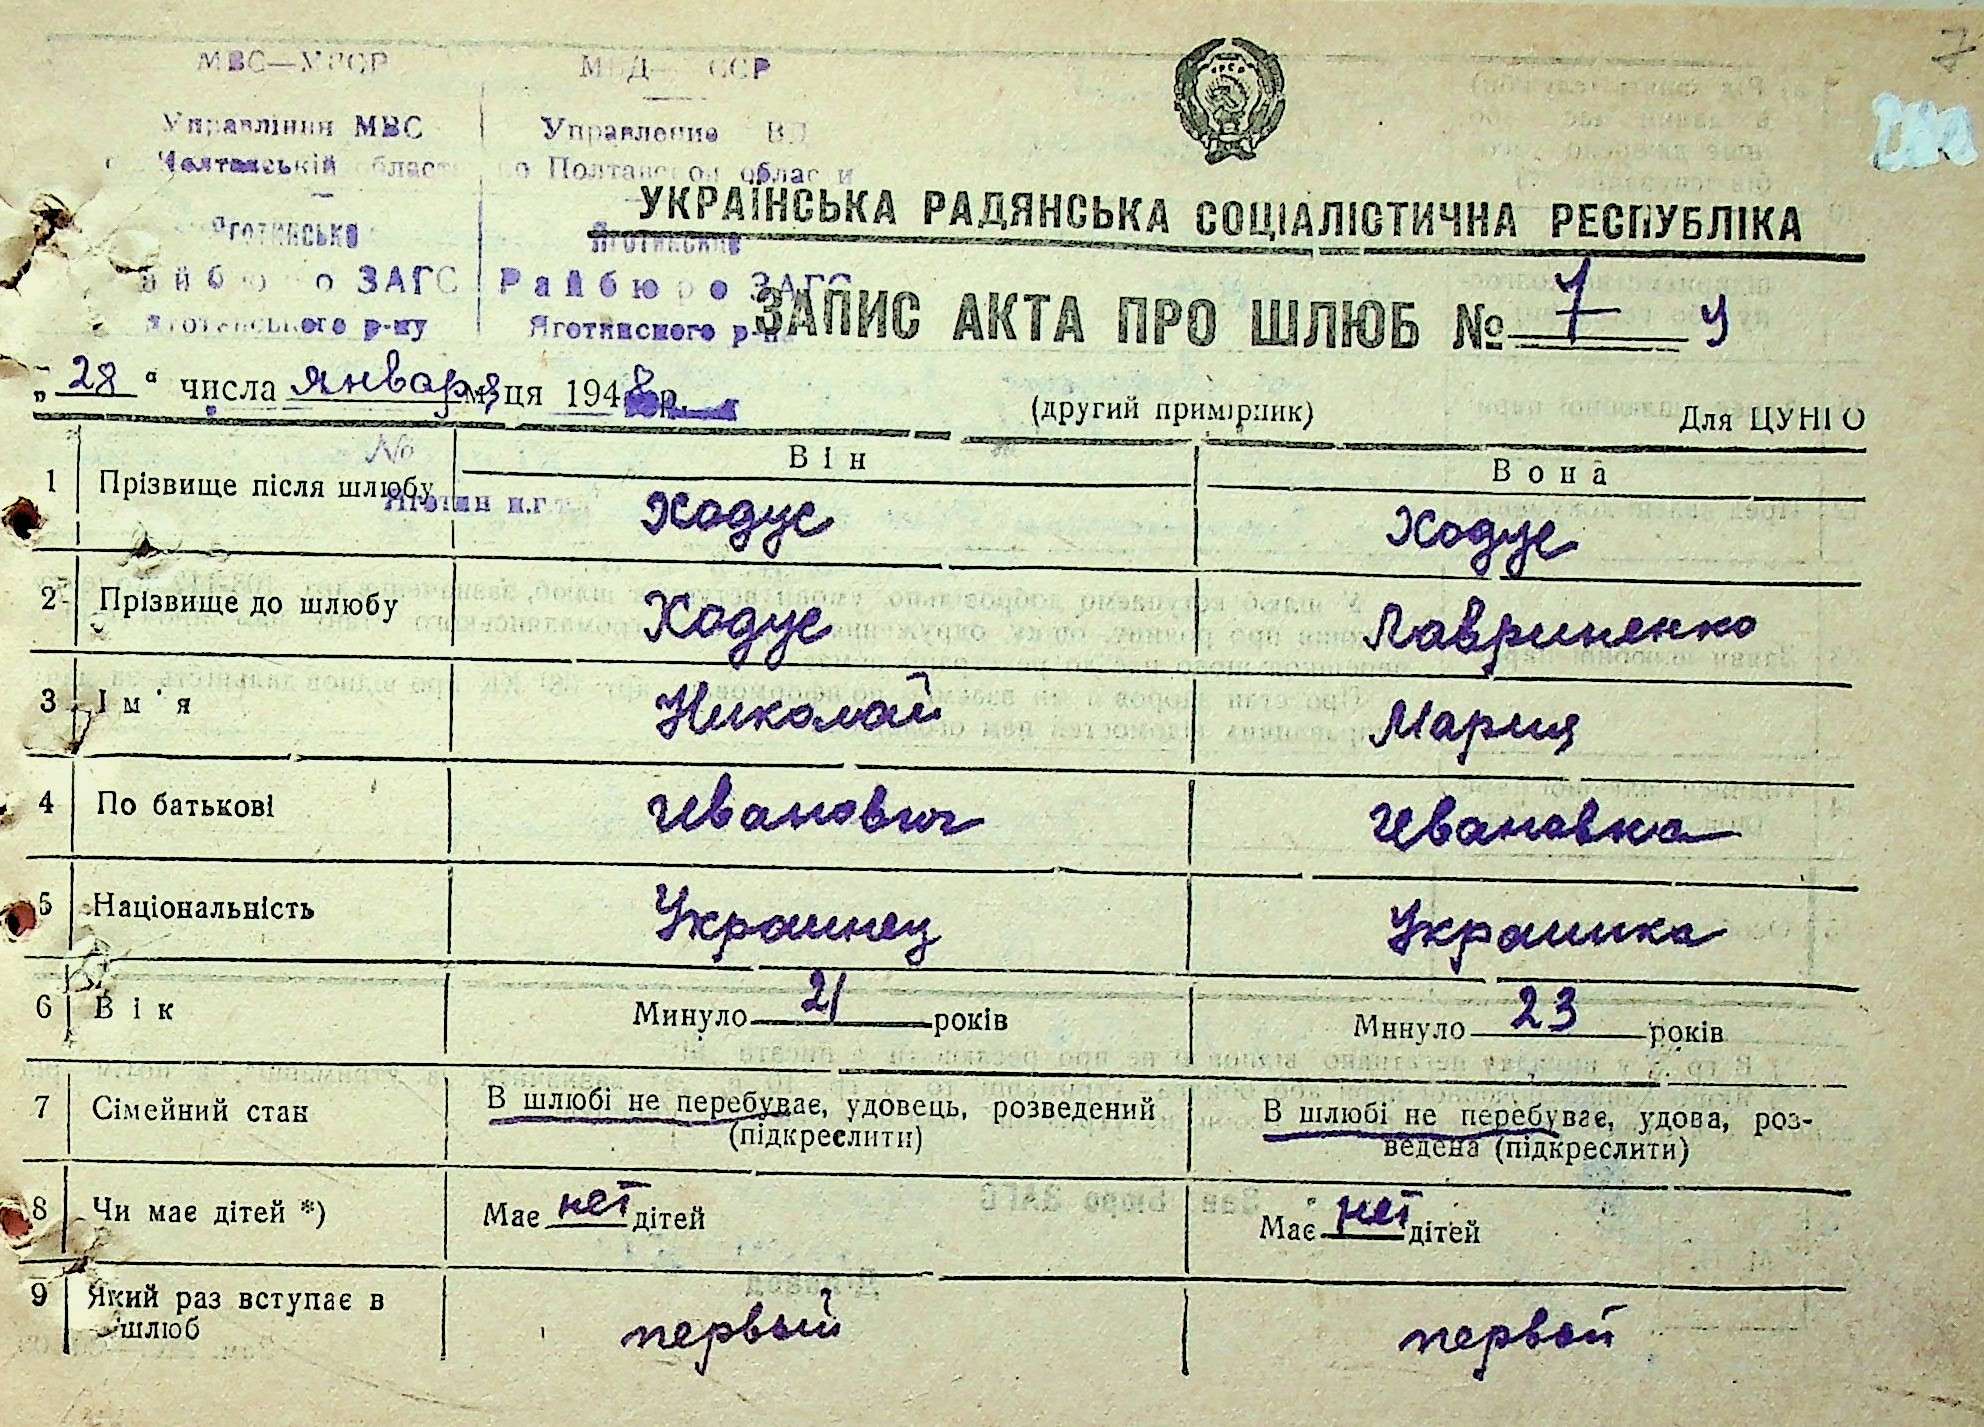 7
МВС—УРСР МВД— ССР
Управління МВС Управление ВД
Полтавській області по Полтавской области
Яготинське Яготинский
УКРАЇНСЬКА РАДЯНСЬКА СОЦІАЛІСТИЧНА РЕСПУБЛІКА
айбюро ЗАГС Райбюро ЗАГС
Яготинського р-ну Яготинского р-на
ЗАПИС АКТА ПРО ШЛЮБ № 7 у
„28“ числа января м-ця 1948 р.
(другий примірник) Для ЦУНГО
№
Яготин п.г.т.
Він Вона
1 Прізвище після шлюбу Ходус Ходус
2 Прізвище до шлюбу Ходус Лавриненко
3 Ім'я Николай Мария
4 По батькові Иванович Ивановка
5 Національність Украинец Украинка
6 Вік Минуло 21 років Минуло 23 років
7 Сімейний стан В шлюбі не перебуває, удовець, розведений В шлюбі не перебуває, удова, роз-
(підкреслити) ведена (підкреслити)
8 Чи має дітей *) Має нет дітей Має нет дітей
9 Який раз вступає в
шлюб первый первой